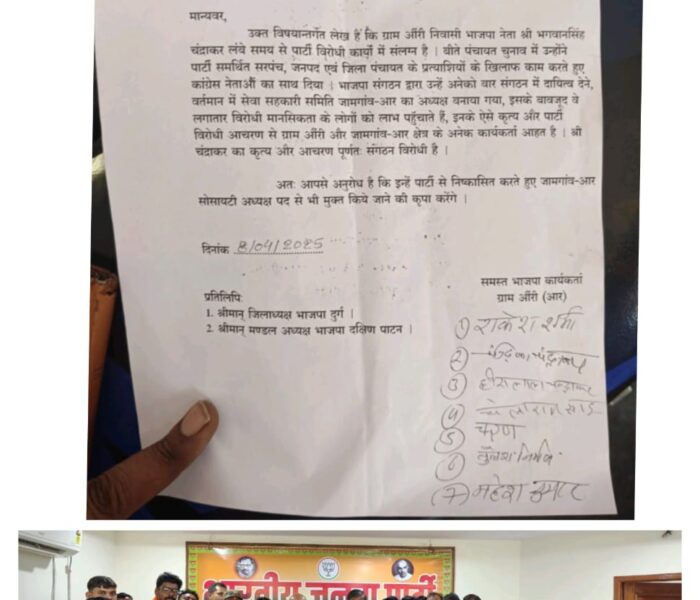 मान्यवर,
उक्त विषयान्तर्गत लेख है कि ग्राम औंरी निवासी भाजपा नेता श्री भगवानसिंह
चंद्राकर लंबे समय से पार्टी विरोधी कार्यो में संलग्न है । बीते पंचायत चुनाव में उन्होंने
पार्टी समर्थित सरपंच, जनपद एवं जिला पंचायत के प्रत्याशियों के खिलाफ काम करते हुए
कांग्रेस नेताओं का साथ दिया । भाजपा संगठन द्वारा उन्हें अनेको वार संगठन में दायित्व देने,
वर्तमान में सेवा सहकारी समिति जामगांव-आर का अध्यक्ष बनाया गया, इसके बावजूद वे
लगातार विरोधी मानसिकता के लोगों को लाभ पहुंचाते हैं, इनके ऐसे कृत्य और पार्टी
विरोधी आचरण से ग्राम औंरी और जामगांव-आर क्षेत्र के अनेक कार्यकर्ता आहत है । श्री
चंद्राकर का कृत्य और आचरण पूर्णतः संगठन विरोधी है ।
अतः आपसे अनुरोध है कि इन्हें पार्टी से निष्कासित करते हुए जामगांव-आर
सोसायटी अध्यक्ष पद से भी मुक्त किये जाने की कृपा करेंगे ।
दिनांक 8/04/2025
समस्त भाजपा कार्यकर्ता
ग्राम औंरी (आर)
प्रतिलिपि:
1. श्रीमान् जिलाध्यक्ष भाजपा दुर्ग ।
2. श्रीमान् मण्डल अध्यक्ष भाजपा दक्षिण पाटन ।
① राकेश शर्मा
②
③ हीरालाल
④
⑤ चरण
⑥
(7) महेश कुमार
भारतीय जनता पार्टी